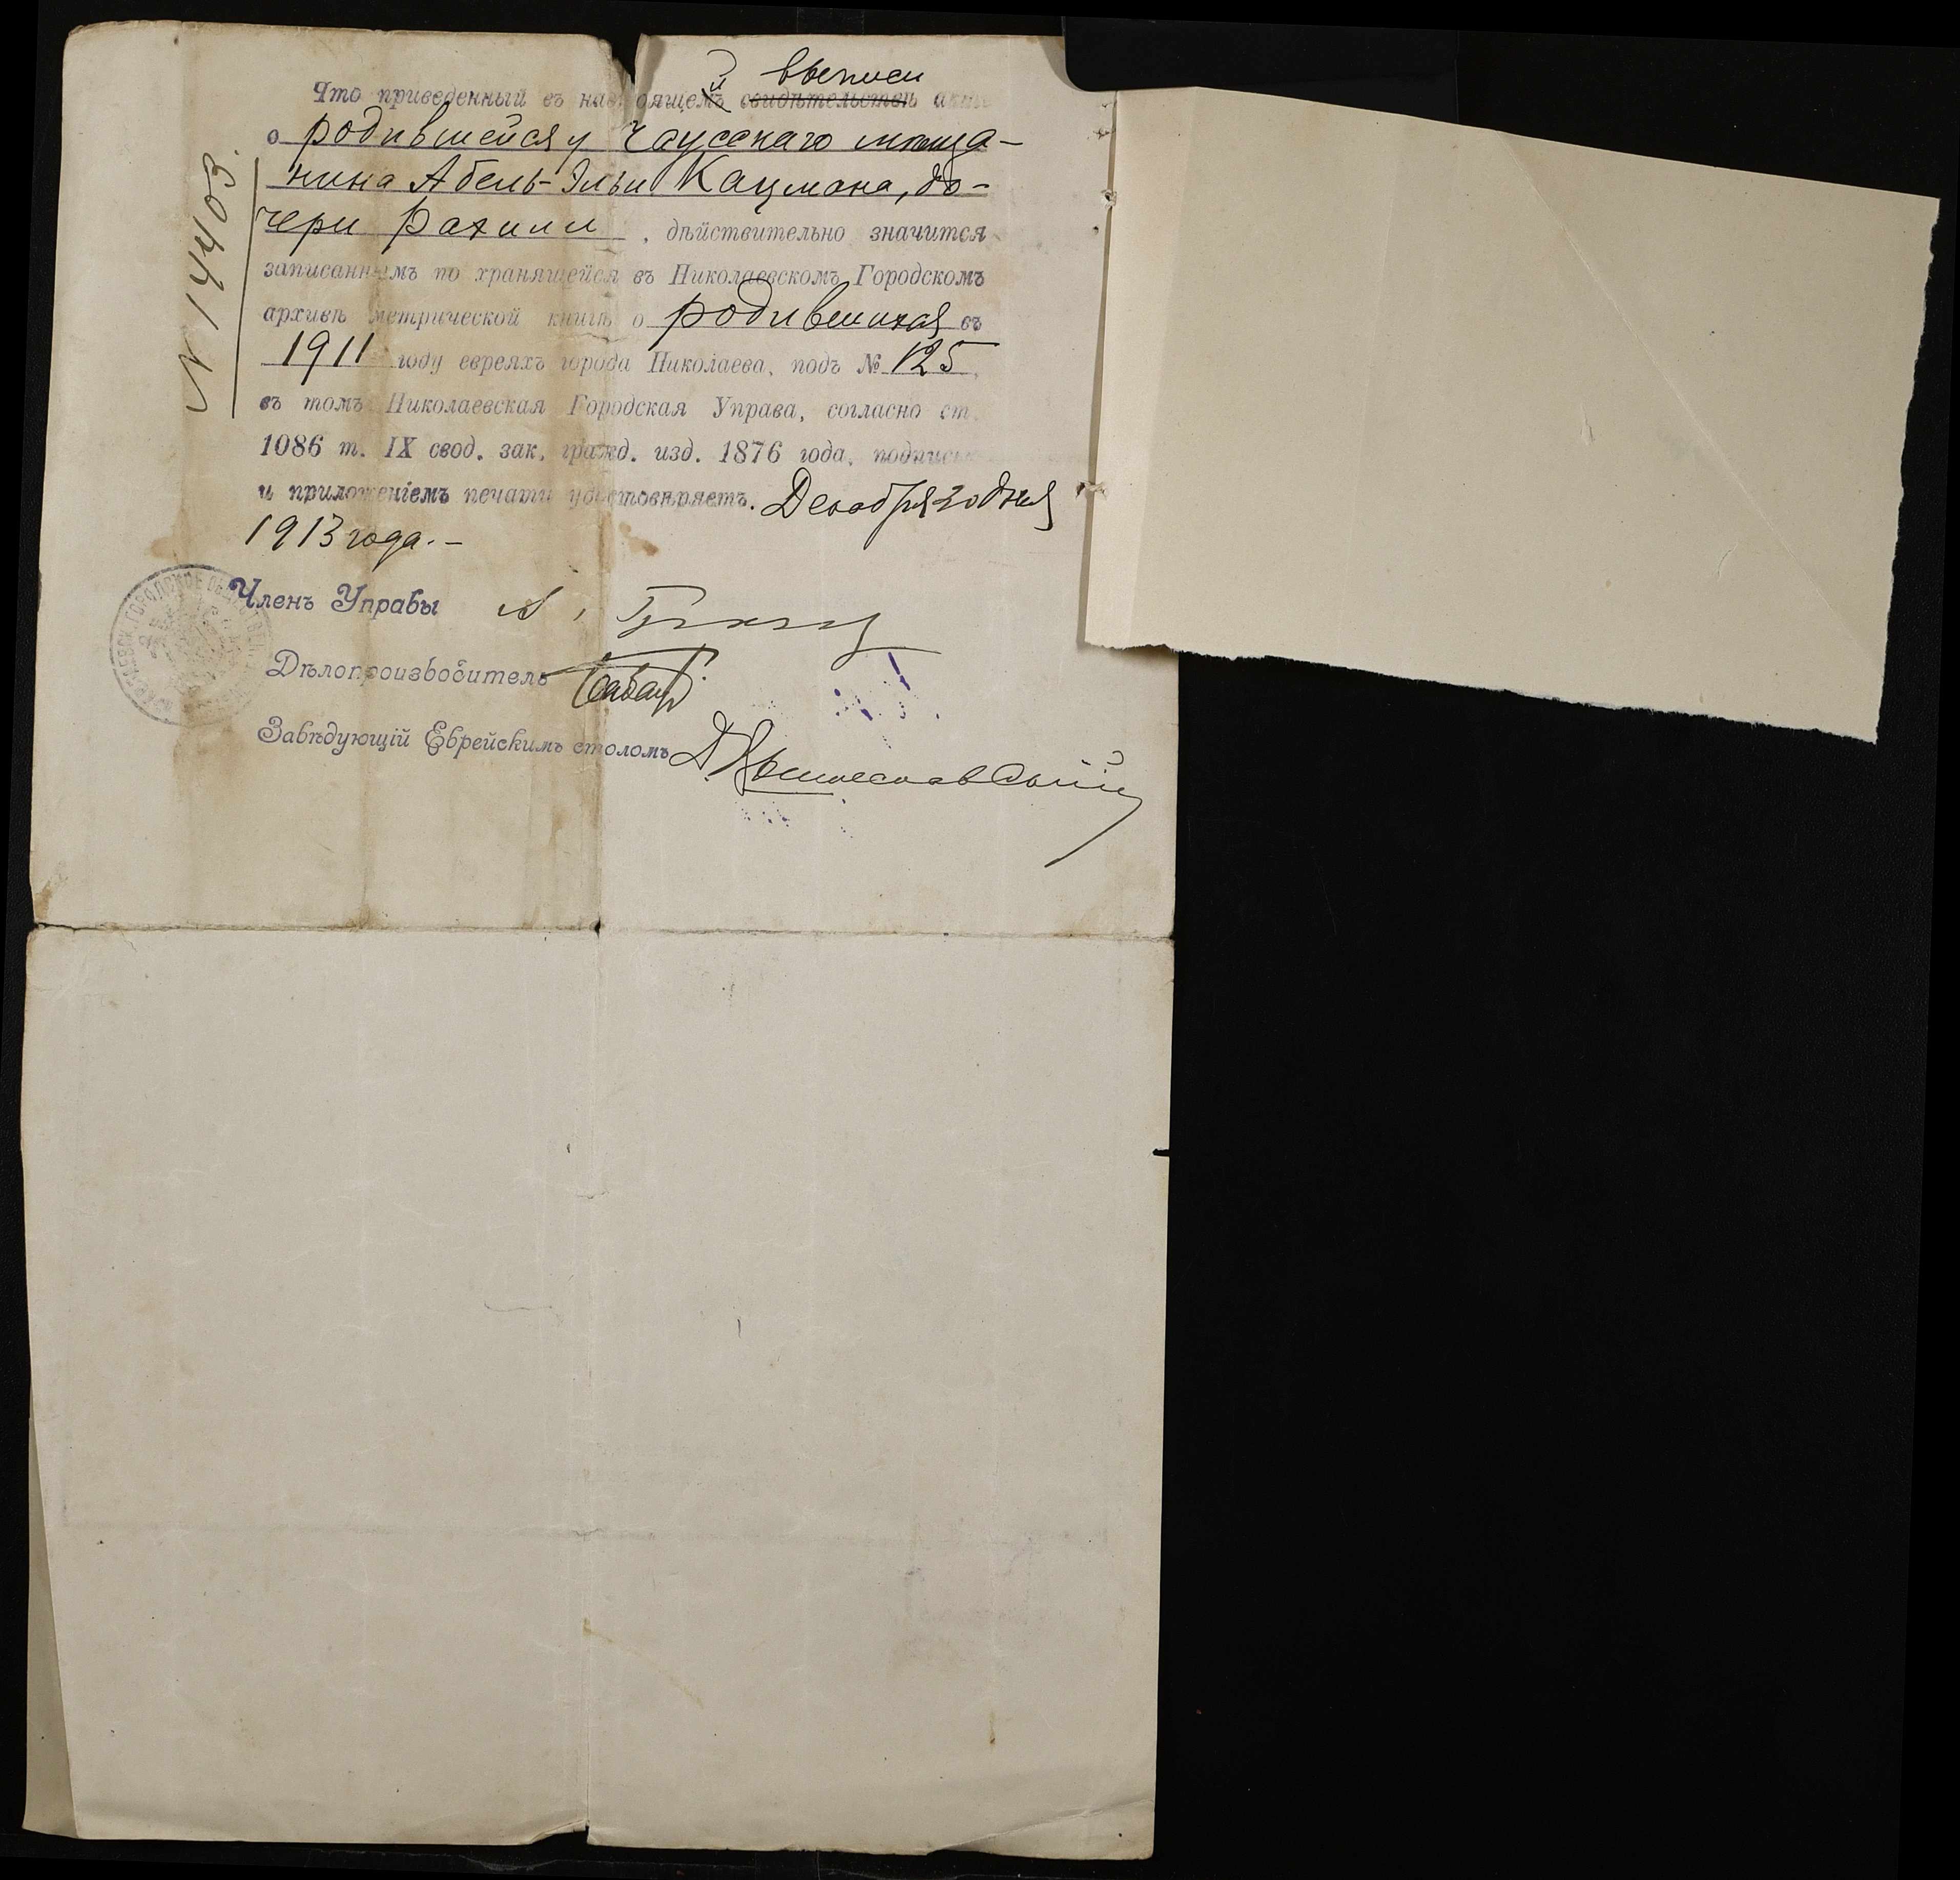 выписи
Что приведенный въ настоящемъ й свидѣтельствѣ актъ
о родившейся у Чаусскаго мѣща-
нина Абель-Эльи Кацмана, до-
чери Рахили, дѣйствительно значится
записаннымъ по хранящейся въ Николаевскомъ Городскомъ
архивѣ метрической книгѣ о родившихся въ
1911 году евреяхъ города Николаева, подъ № 125,
въ томъ Николаевская Городская Управа, согласно ст.
1086 т. IX свод. зак. гражд. изд. 1876 года, подписью
и приложеніемъ печати удостовѣряетъ. Декабря 30 дня
1913 года.-
N 14403.
Членъ Управы
Дѣлопроизводитель
Завѣдующій Еврейскимъ столомъ